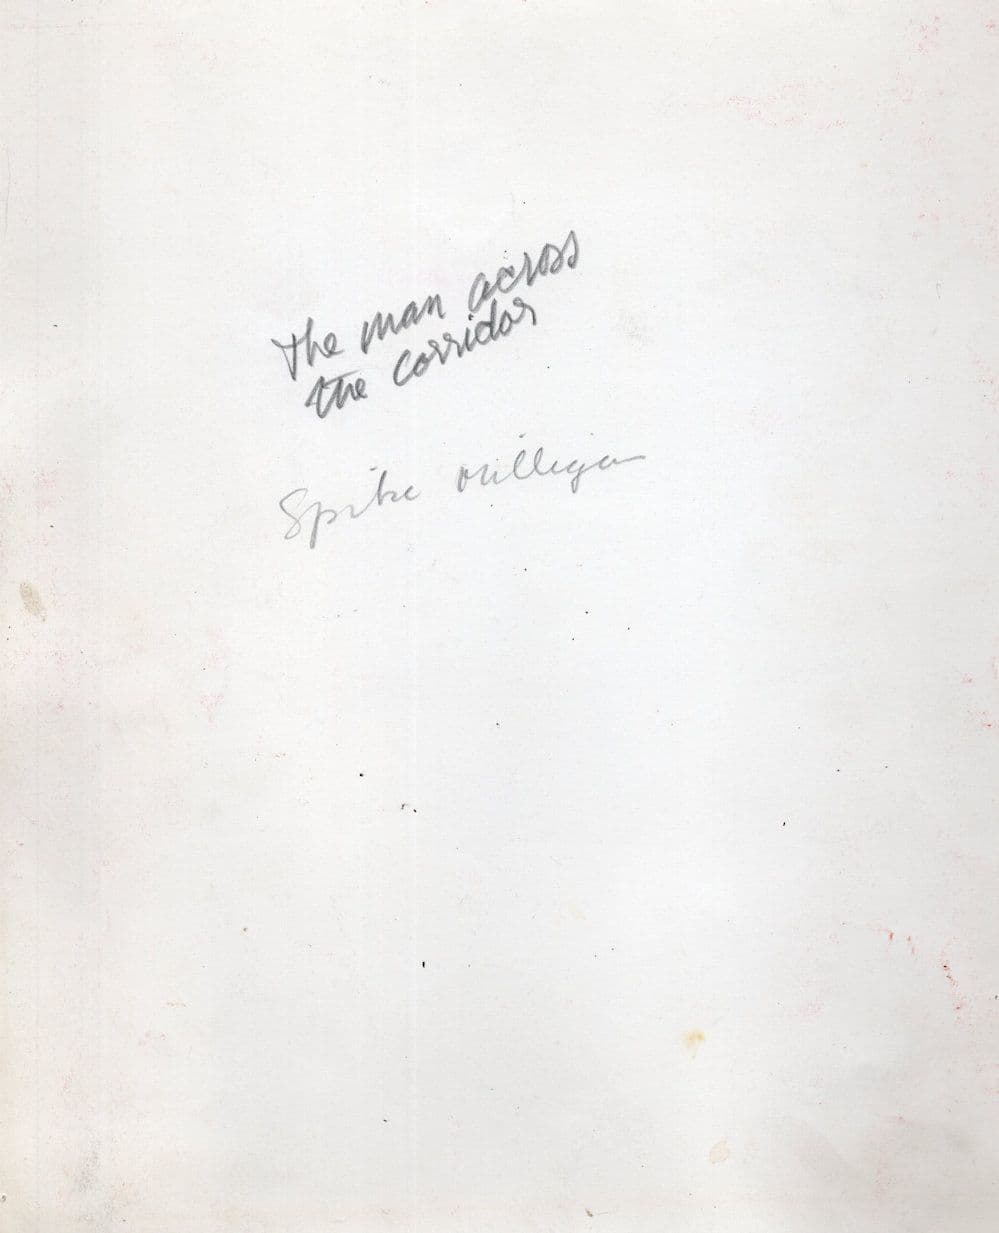 The man across
the corridor
Spike Milligan